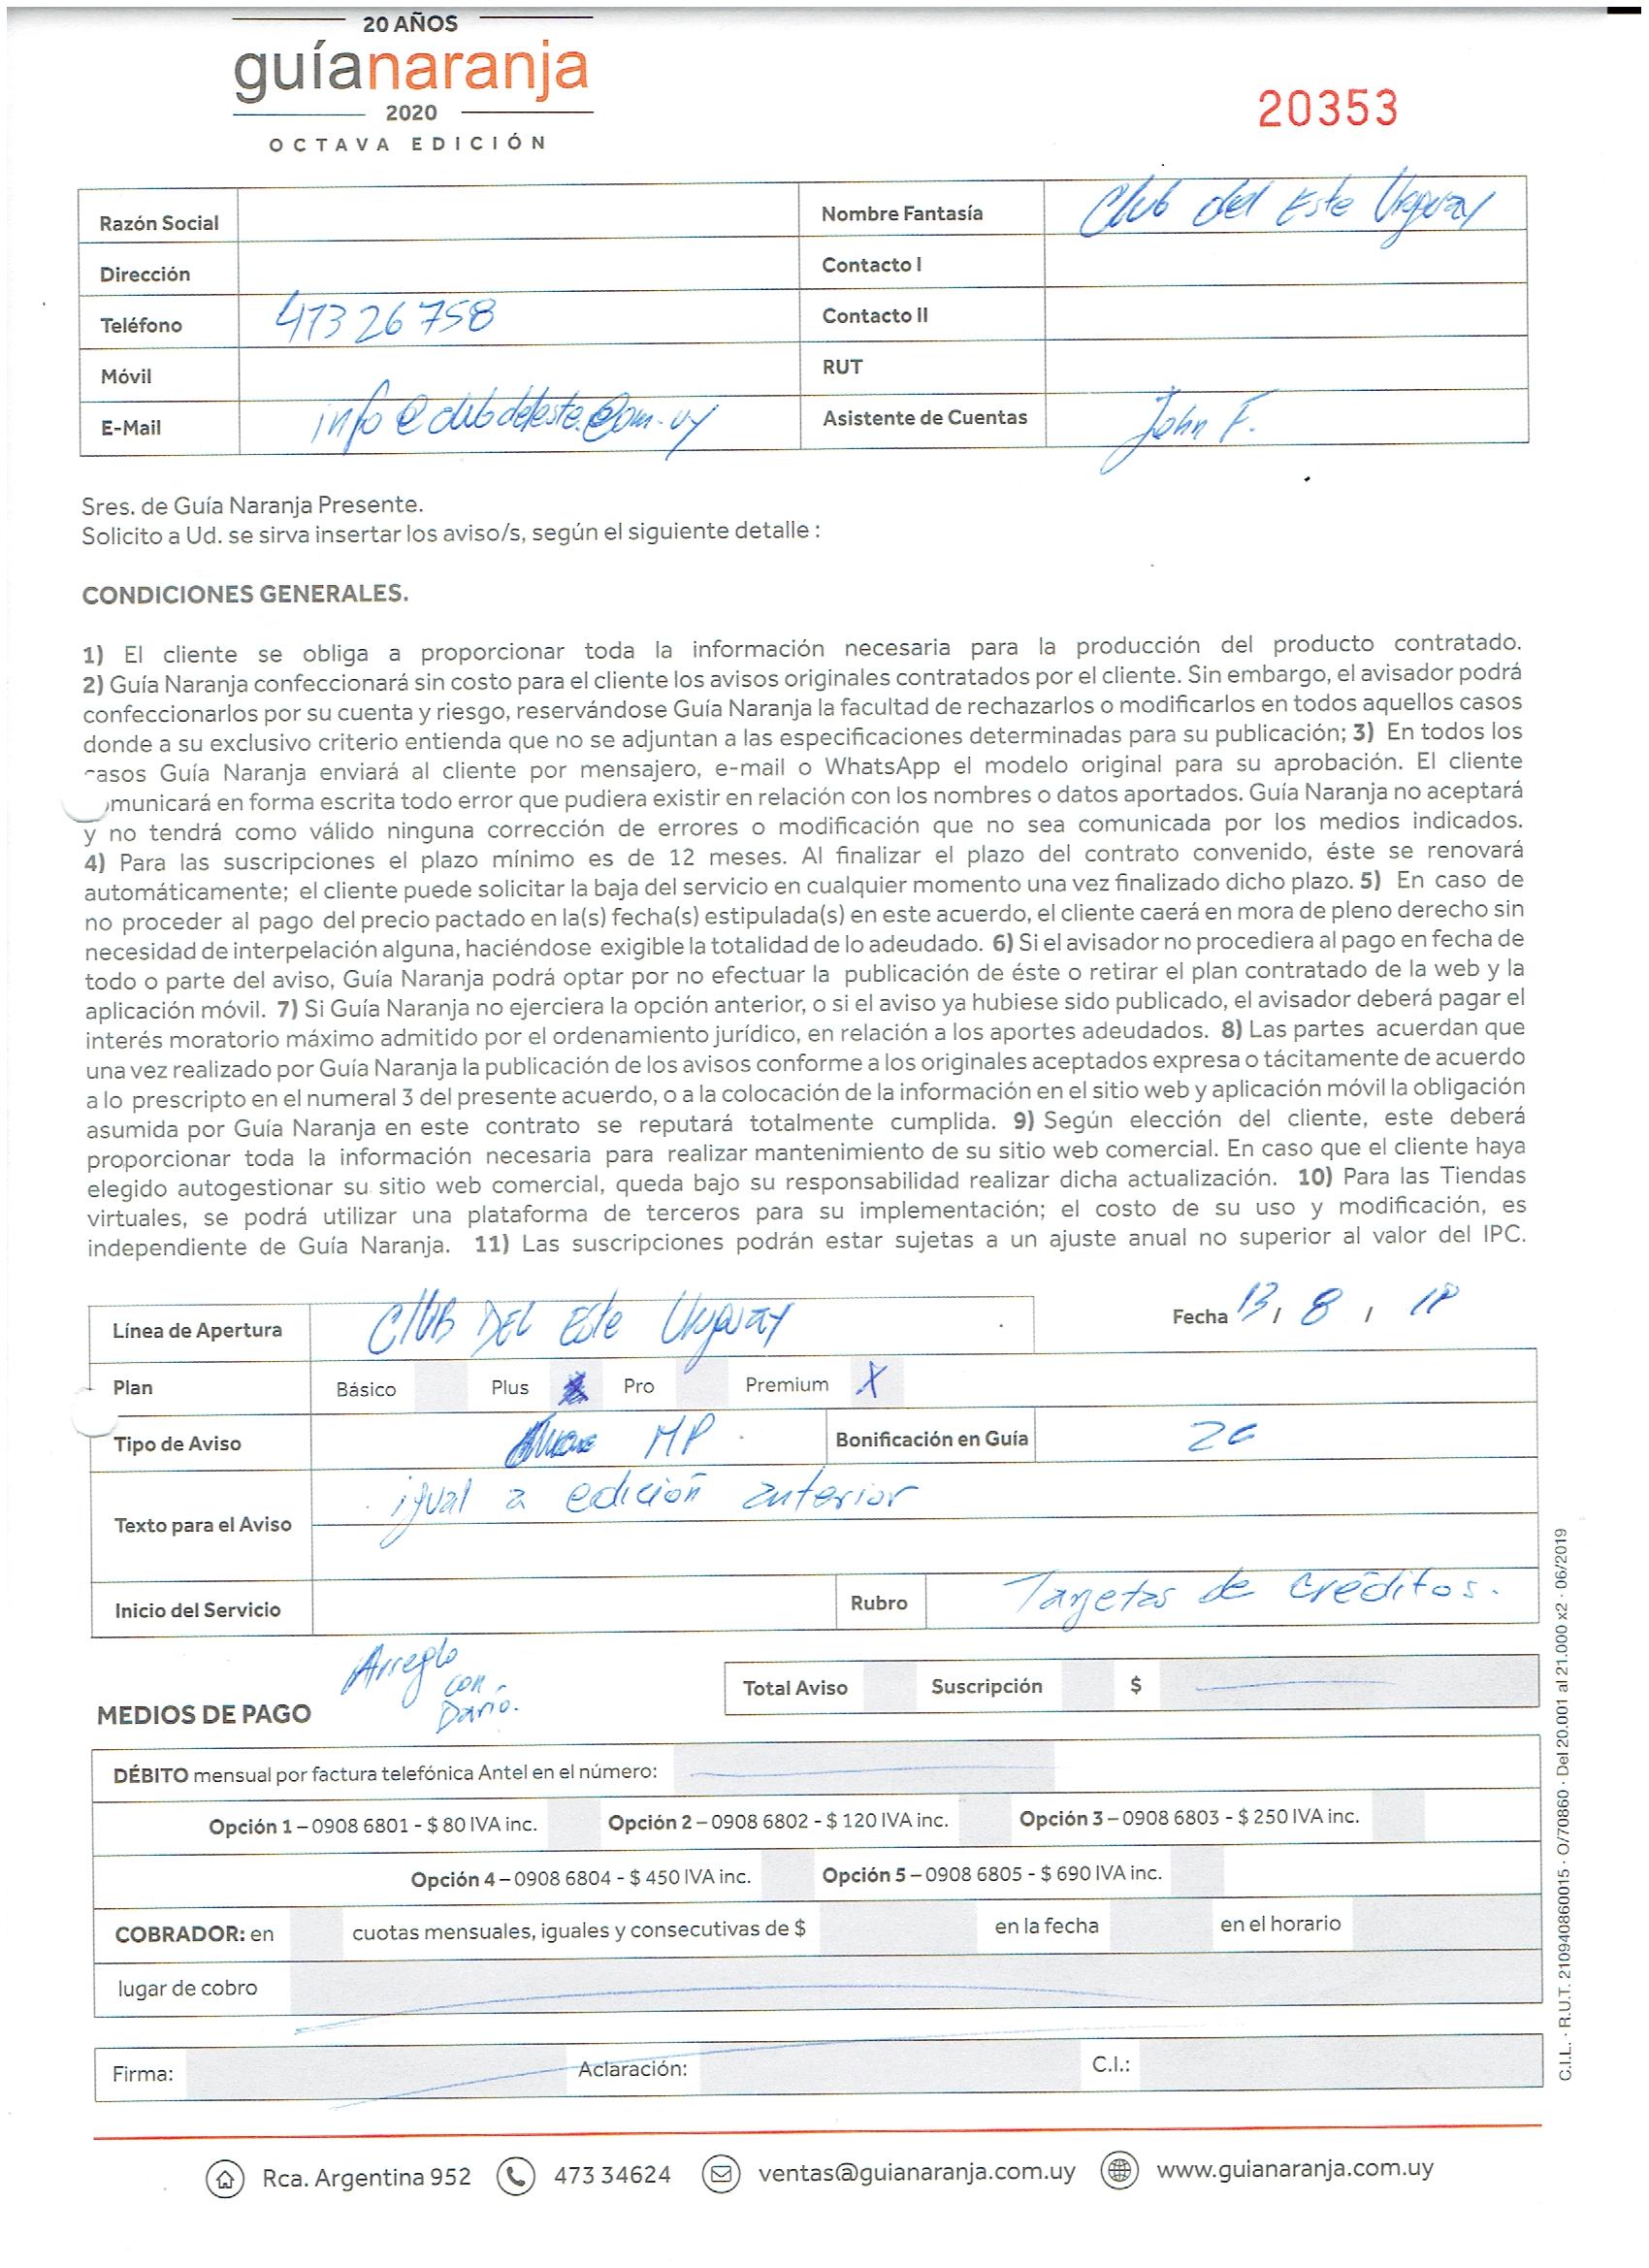 20 AÑOS
guíanaranja
2020
OCTAVA EDICIÓN
20353
Razón Social
Nombre Fantasía Club del Este Uruguay
Dirección
Contacto I
Teléfono 47326758
Contacto II
Móvil
RUT
E-Mail info@clubdeleste.com.uy
Asistente de Cuentas John F.
Sres. de Guía Naranja Presente.
Solicito a Ud. se sirva insertar los aviso/s, según el siguiente detalle :
CONDICIONES GENERALES.
1) El cliente se obliga a proporcionar toda la información necesaria para la producción del producto contratado.
2) Guía Naranja confeccionará sin costo para el cliente los avisos originales contratados por el cliente. Sin embargo, el avisador podrá
confeccionarlos por su cuenta y riesgo, reservándose Guía Naranja la facultad de rechazarlos o modificarlos en todos aquellos casos
donde a su exclusivo criterio entienda que no se adjuntan a las especificaciones determinadas para su publicación; 3) En todos los
casos Guía Naranja enviará al cliente por mensajero, e-mail o WhatsApp el modelo original para su aprobación. El cliente
municará en forma escrita todo error que pudiera existir en relación con los nombres o datos aportados. Guía Naranja no aceptará
y no tendrá como válido ninguna corrección de errores o modificación que no sea comunicada por los medios indicados.
4) Para las suscripciones el plazo mínimo es de 12 meses. Al finalizar el plazo del contrato convenido, éste se renovará
automáticamente; el cliente puede solicitar la baja del servicio en cualquier momento una vez finalizado dicho plazo. 5) En caso de
no proceder al pago del precio pactado en la(s) fecha(s) estipulada(s) en este acuerdo, el cliente caerá en mora de pleno derecho sin
necesidad de interpelación alguna, haciéndose exigible la totalidad de lo adeudado. 6) Si el avisador no procediera al pago en fecha de
todo o parte del aviso, Guía Naranja podrá optar por no efectuar la publicación de éste o retirar el plan contratado de la web y la
aplicación móvil. 7) Si Guía Naranja no ejerciera la opción anterior, o si el aviso ya hubiese sido publicado, el avisador deberá pagar el
interés moratorio máximo admitido por el ordenamiento jurídico, en relación a los aportes adeudados. 8) Las partes acuerdan que
una vez realizado por Guía Naranja la publicación de los avisos conforme a los originales aceptados expresa o tácitamente de acuerdo
a lo prescripto en el numeral 3 del presente acuerdo, o a la colocación de la información en el sitio web y aplicación móvil la obligación
asumida por Guía Naranja en este contrato se reputará totalmente cumplida. 9) Según elección del cliente, este deberá
proporcionar toda la información necesaria para realizar mantenimiento de su sitio web comercial. En caso que el cliente haya
elegido autogestionar su sitio web comercial, queda bajo su responsabilidad realizar dicha actualización. 10) Para las Tiendas
virtuales, se podrá utilizar una plataforma de terceros para su implementación; el costo de su uso y modificación, es
independiente de Guía Naranja. 11) Las suscripciones podrán estar sujetas a un ajuste anual no superior al valor del IPC.
Línea de Apertura CLUB DEL Este Uruguay
Fecha 13 / 8 /
Plan Básico Plus Pro Premium X
Tipo de Aviso MP. Bonificación en Guía
Texto para el Aviso igual a edición anterior
Inicio del Servicio
Rubro Tarjetas de créditos.
Arreglo
con
Darío.
MEDIOS DE PAGO
Total Aviso Suscripción $
DÉBITO mensual por factura telefónica Antel en el número:
Opción 1 – 0908 6801 - $ 80 IVA inc. Opción 2 – 0908 6802 - $ 120 IVA inc. Opción 3 – 0908 6803 - $ 250 IVA inc.
Opción 4 – 0908 6804 - $ 450 IVA inc. Opción 5 – 0908 6805 - $ 690 IVA inc.
COBRADOR: en cuotas mensuales, iguales y consecutivas de $ en la fecha en el horario
lugar de cobro
Firma: Aclaración: C.I.:
C.I.L. · R.U.T. 210940860015 · O/70860 · Del 20.001 al 21.000 x2 · 06/2019
Rca. Argentina 952 473 34624 ventas@guianaranja.com.uy www.guianaranja.com.uy